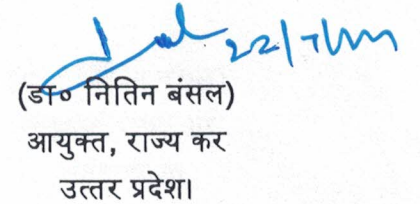 22/7/
(डा० नितिन बंसल)
आयुक्त, राज्य कर
उत्तर प्रदेश।